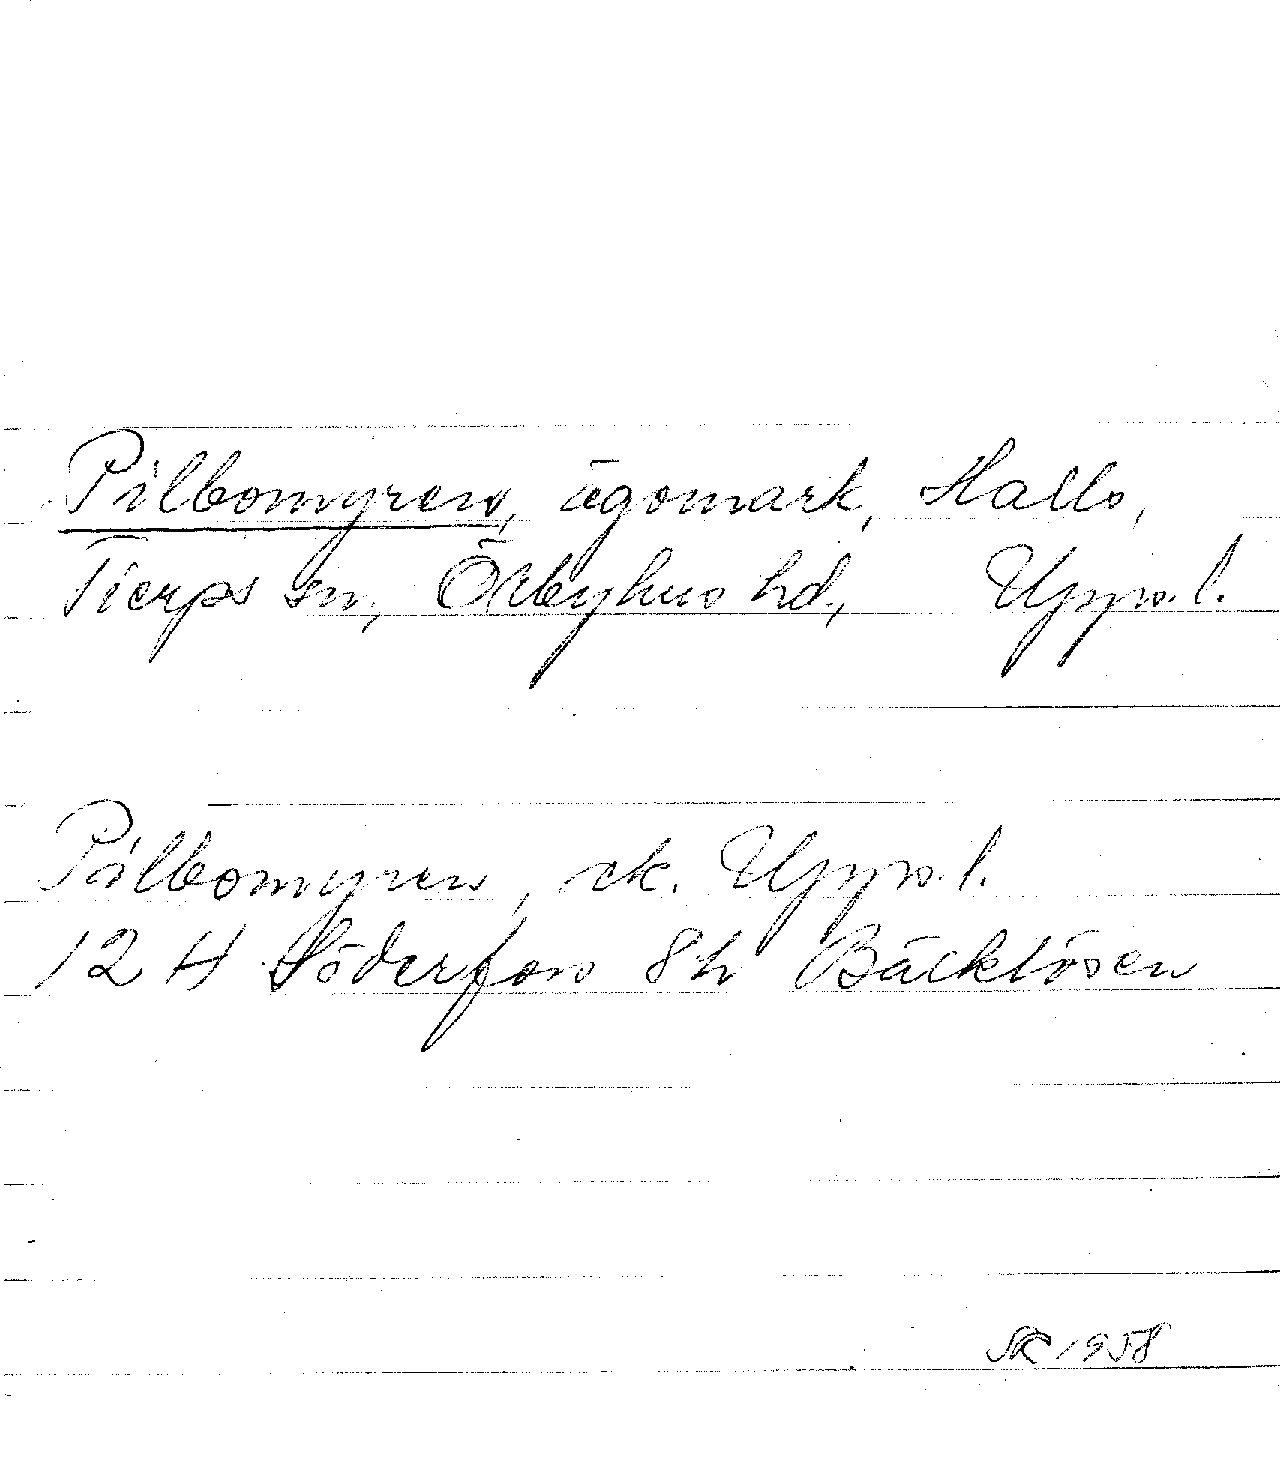 Pilbomyren, ägomark, Halls,
Tierps sn, Örbyhus hd, Upps. l.
Pilbomyren, ek. Upps. l.
12 H Söderfors 8h Bäcklösen
SK 1958